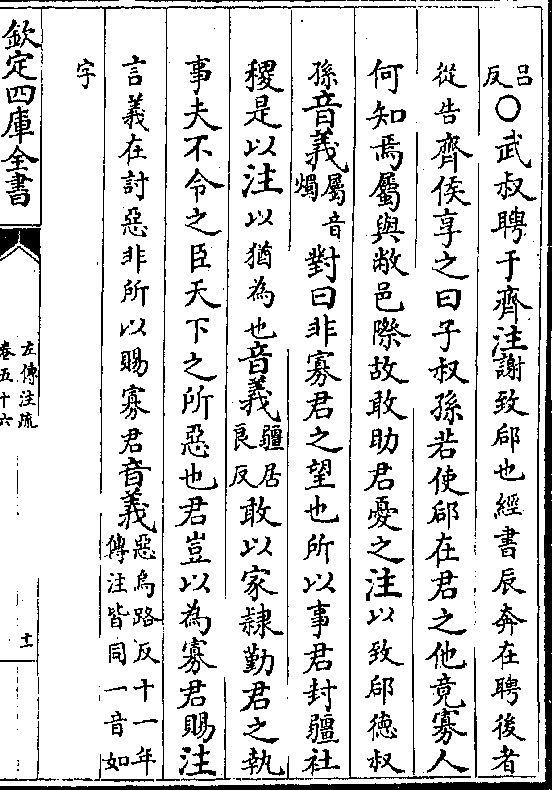 呂反○武叔聘于齊注謝致郈也經書辰奔在聘後者
從告齊侯享之曰子叔孫若使郈在君之他竟寡人
何知焉屬與敝邑際故敢助君憂之注以致郈德叔
孫音義屬音燭對曰非寡君之望也所以事君封疆社
稷是以注以猶為也音義疆居良反敢以家隸勤君之執
事夫不令之臣天下之所惡也君豈以為寡君賜注
言義在討惡非所以賜寡君音義惡烏路反十一年傳注皆同一音如
字
欽定四庫全書
左傳注疏
卷五十六
十一